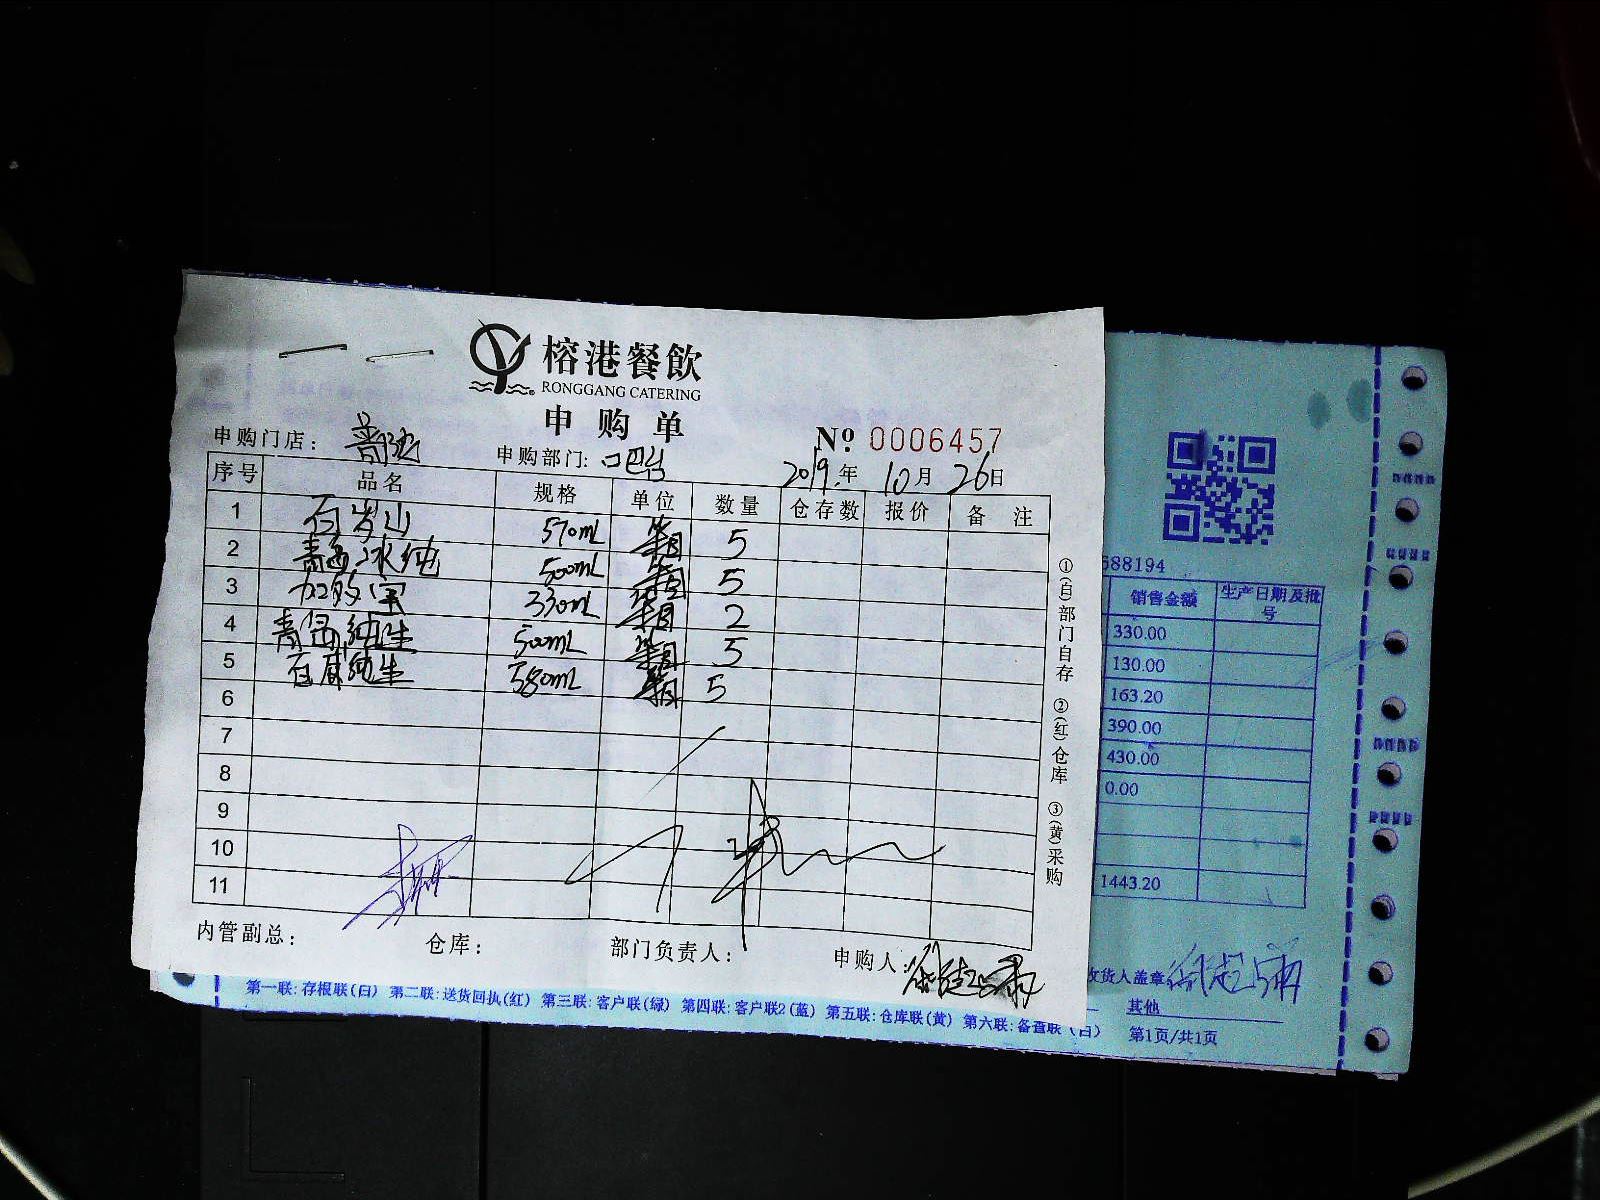 榕港餐飲
RONGGANG CATERING
申购单
申购门店: 普陀 申购部门: 吧台 № 0006457
2019年 10月 26日
序号 品名 规格 单位 数量 仓存数 报价 备注
1 百岁山 570mL 箱 5
2 青岛冰纯 500mL 箱 5
3 加多宝 330mL 箱 2
4 青岛纯生 500mL 箱 5
5 百威纯生 580mL 箱 5
6
7
8
9
10
11
内管副总: 仓库: 部门负责人: 申购人:
①(白)部门自存 ②(红)仓库 ③(黄)采购
588194
销售金额 生产日期及批号
330.00
130.00
163.20
390.00
430.00
0.00
1443.20
收货人盖章
其他
第一联:存根联(白) 第二联:送货回执(红) 第三联:客户联(绿) 第四联:客户联2(蓝) 第五联:仓库联(黄) 第六联:备查联(白) 第1页/共1页